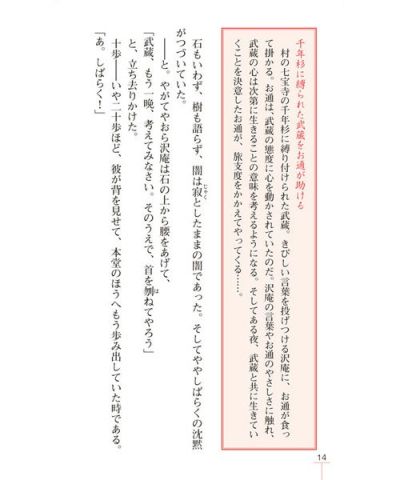 千年杉に縛られた武蔵をお通が助ける
村の七宝寺の千年杉に縛り付けられた武蔵。きびしい言葉を投げつける沢庵に、お通が食っ
て掛かる。お通は、武蔵の態度に心を動かされていたのだ。沢庵の言葉やお通のやさしさに触れ、
武蔵の心は次第に生きることの意味を考えるようになる。そしてある夜、武蔵と共に生きてい
くことを決意したお通が、旅支度をかかえてやってくる……。
石もいわず、樹も語らず、闇は寂としたままの闇であった。そしてややしばらくの沈黙
がつづいていた。
――と。やがてやおら沢庵は石の上から腰をあげて、
「武蔵、もう一晩、考えてみなさい。そのうえで、首を刎ねてやろう」
と、立ち去りかけた。
十歩――いや二十歩ほど、彼が背を見せて、本堂のほうへもう歩み出していた時である。
「あ。しばらく！」
14